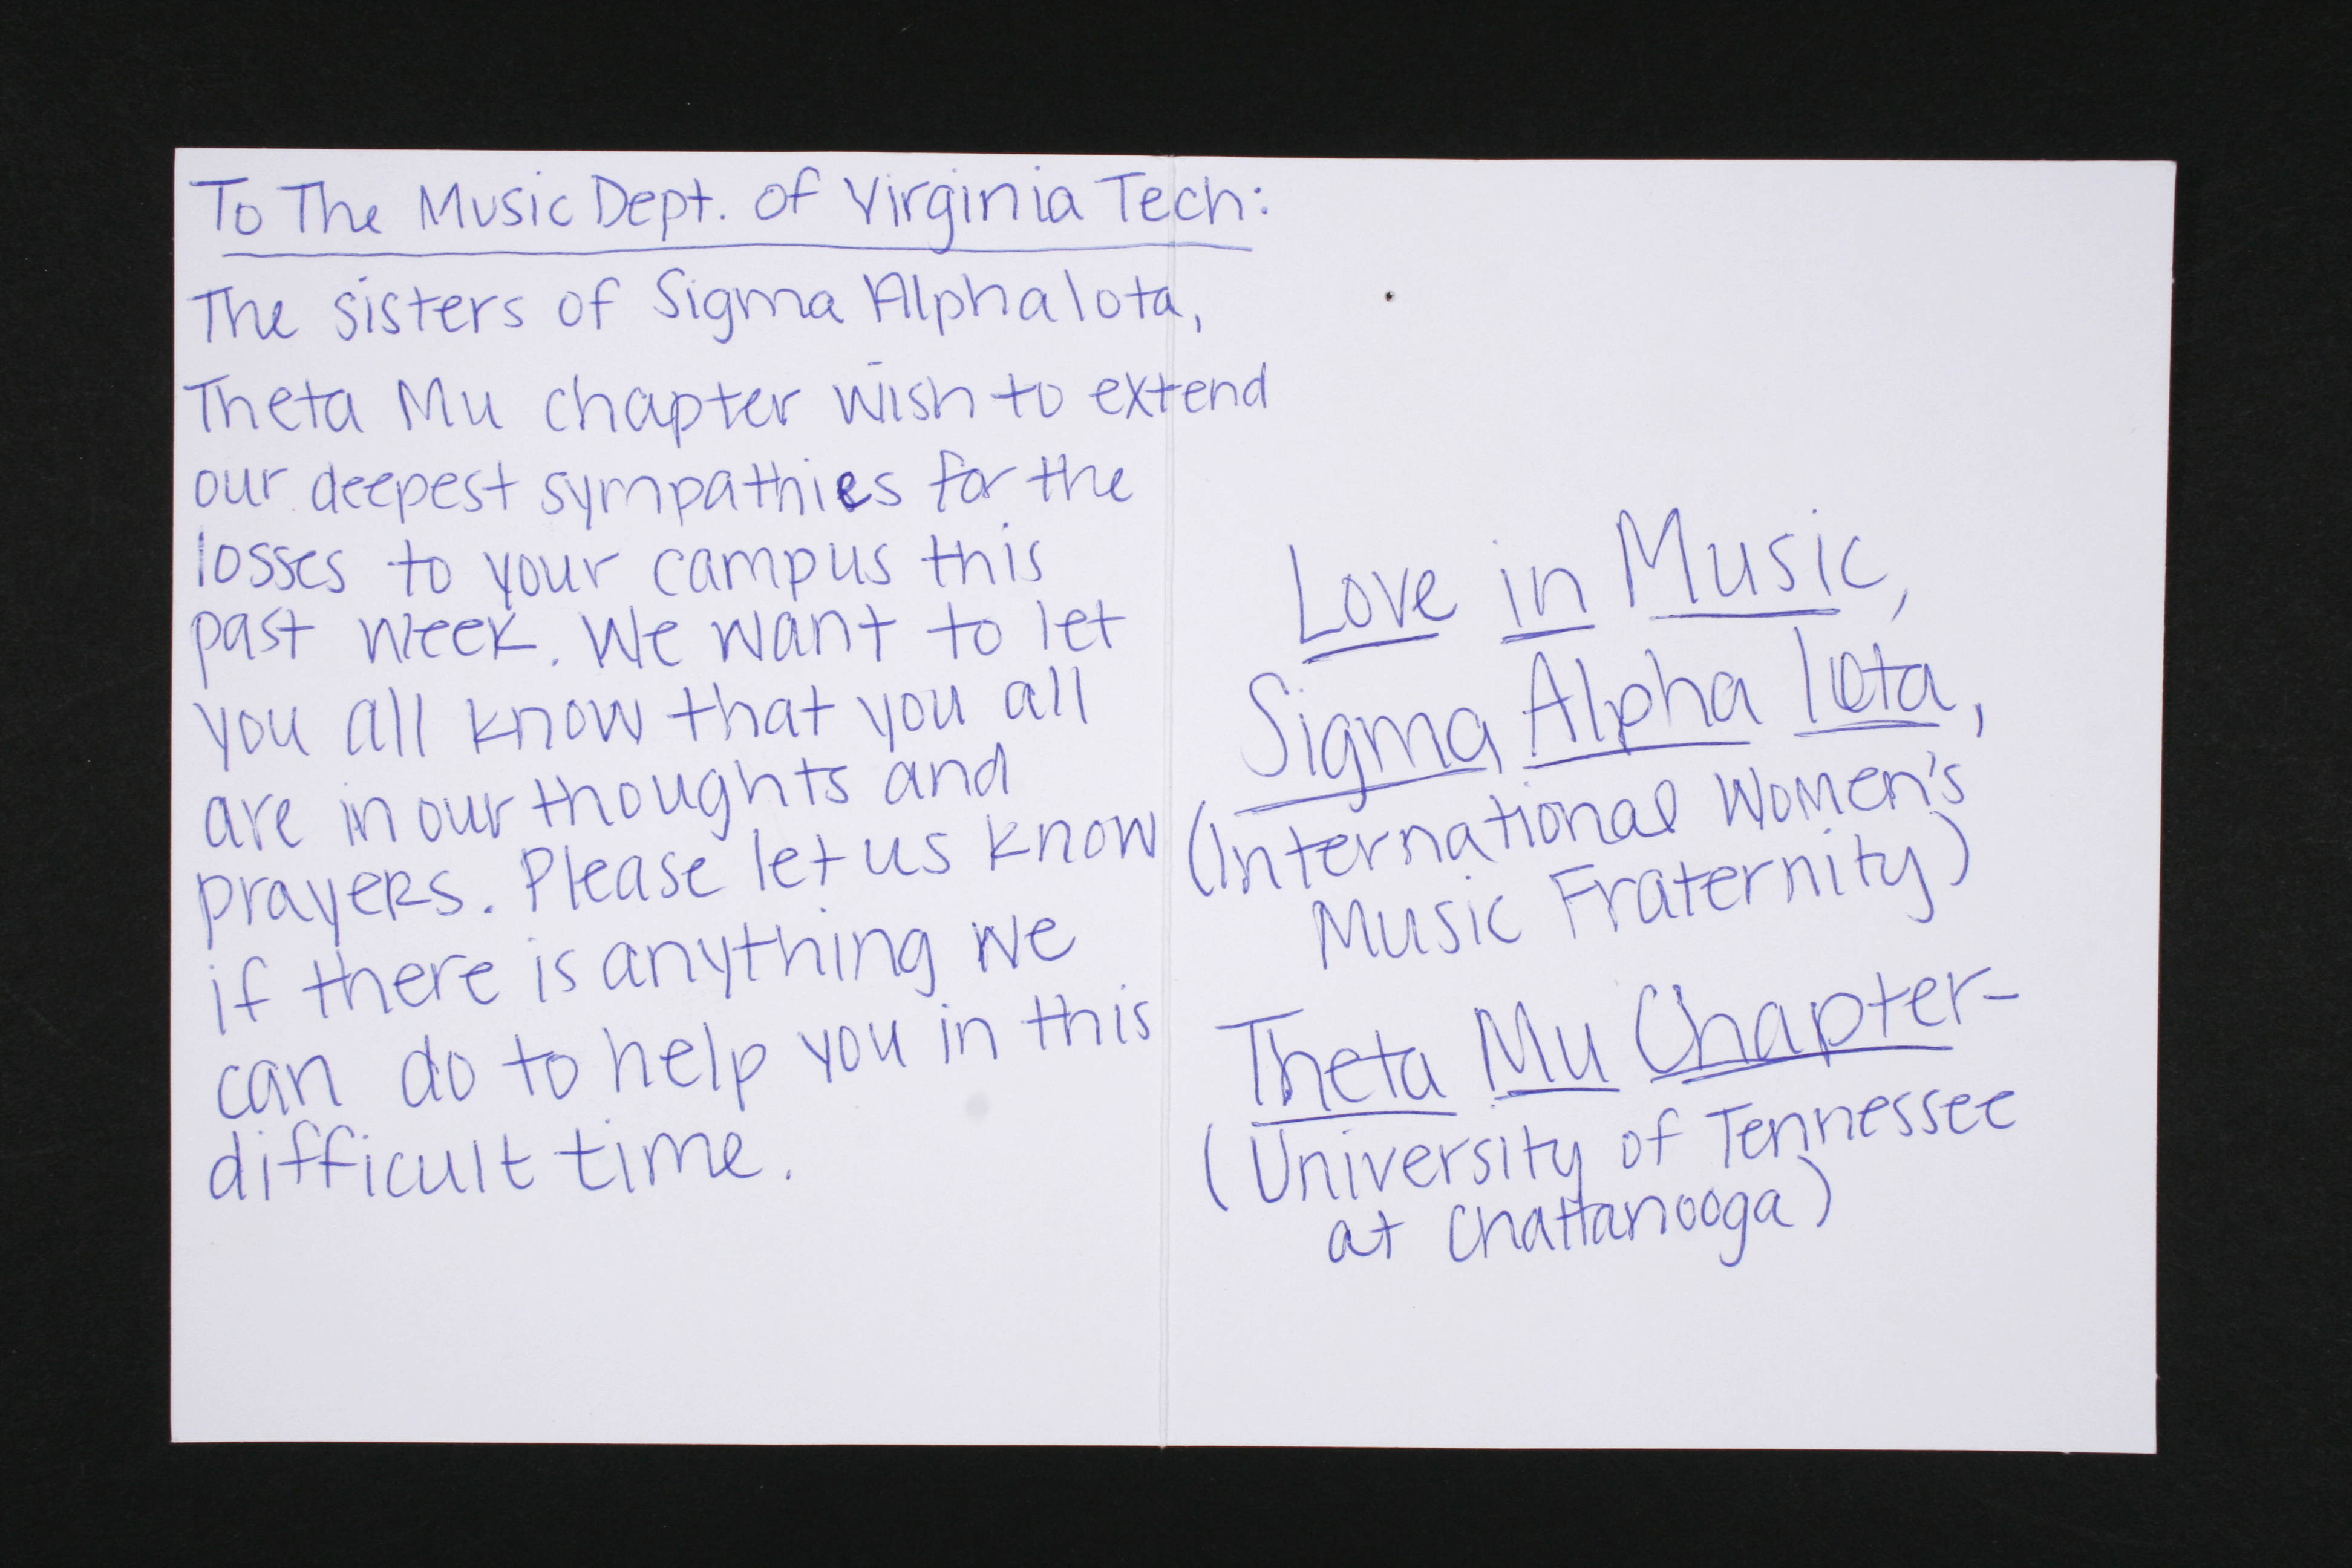 To The Music Dept. of Virginia Tech:
The sisters of Sigma Alpha Iota,
Theta Mu chapter wish to extend
our deepest sympathies for the
losses to your campus this
past week. We want to let
you all know that you all
are in our thoughts and
prayers. Please let us know
if there is anything we
can do to help you in this
difficult time.
Love in Music,
Sigma Alpha Iota,
(International Women's
Music Fraternity)
Theta Mu Chapter-
(University of Tennessee
at Chattanooga)